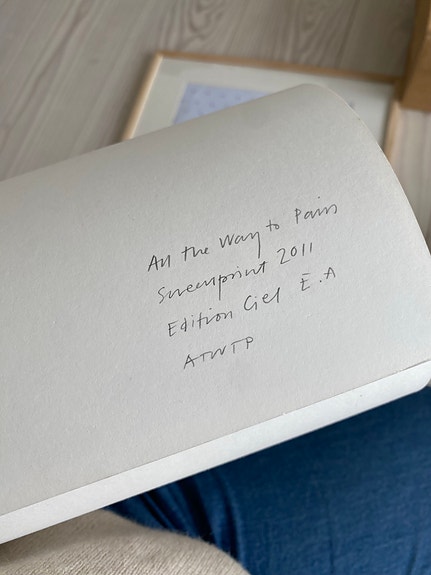 All the Way to Pain
Screenprint 2011
Edition Ciel E.A
ATWTP